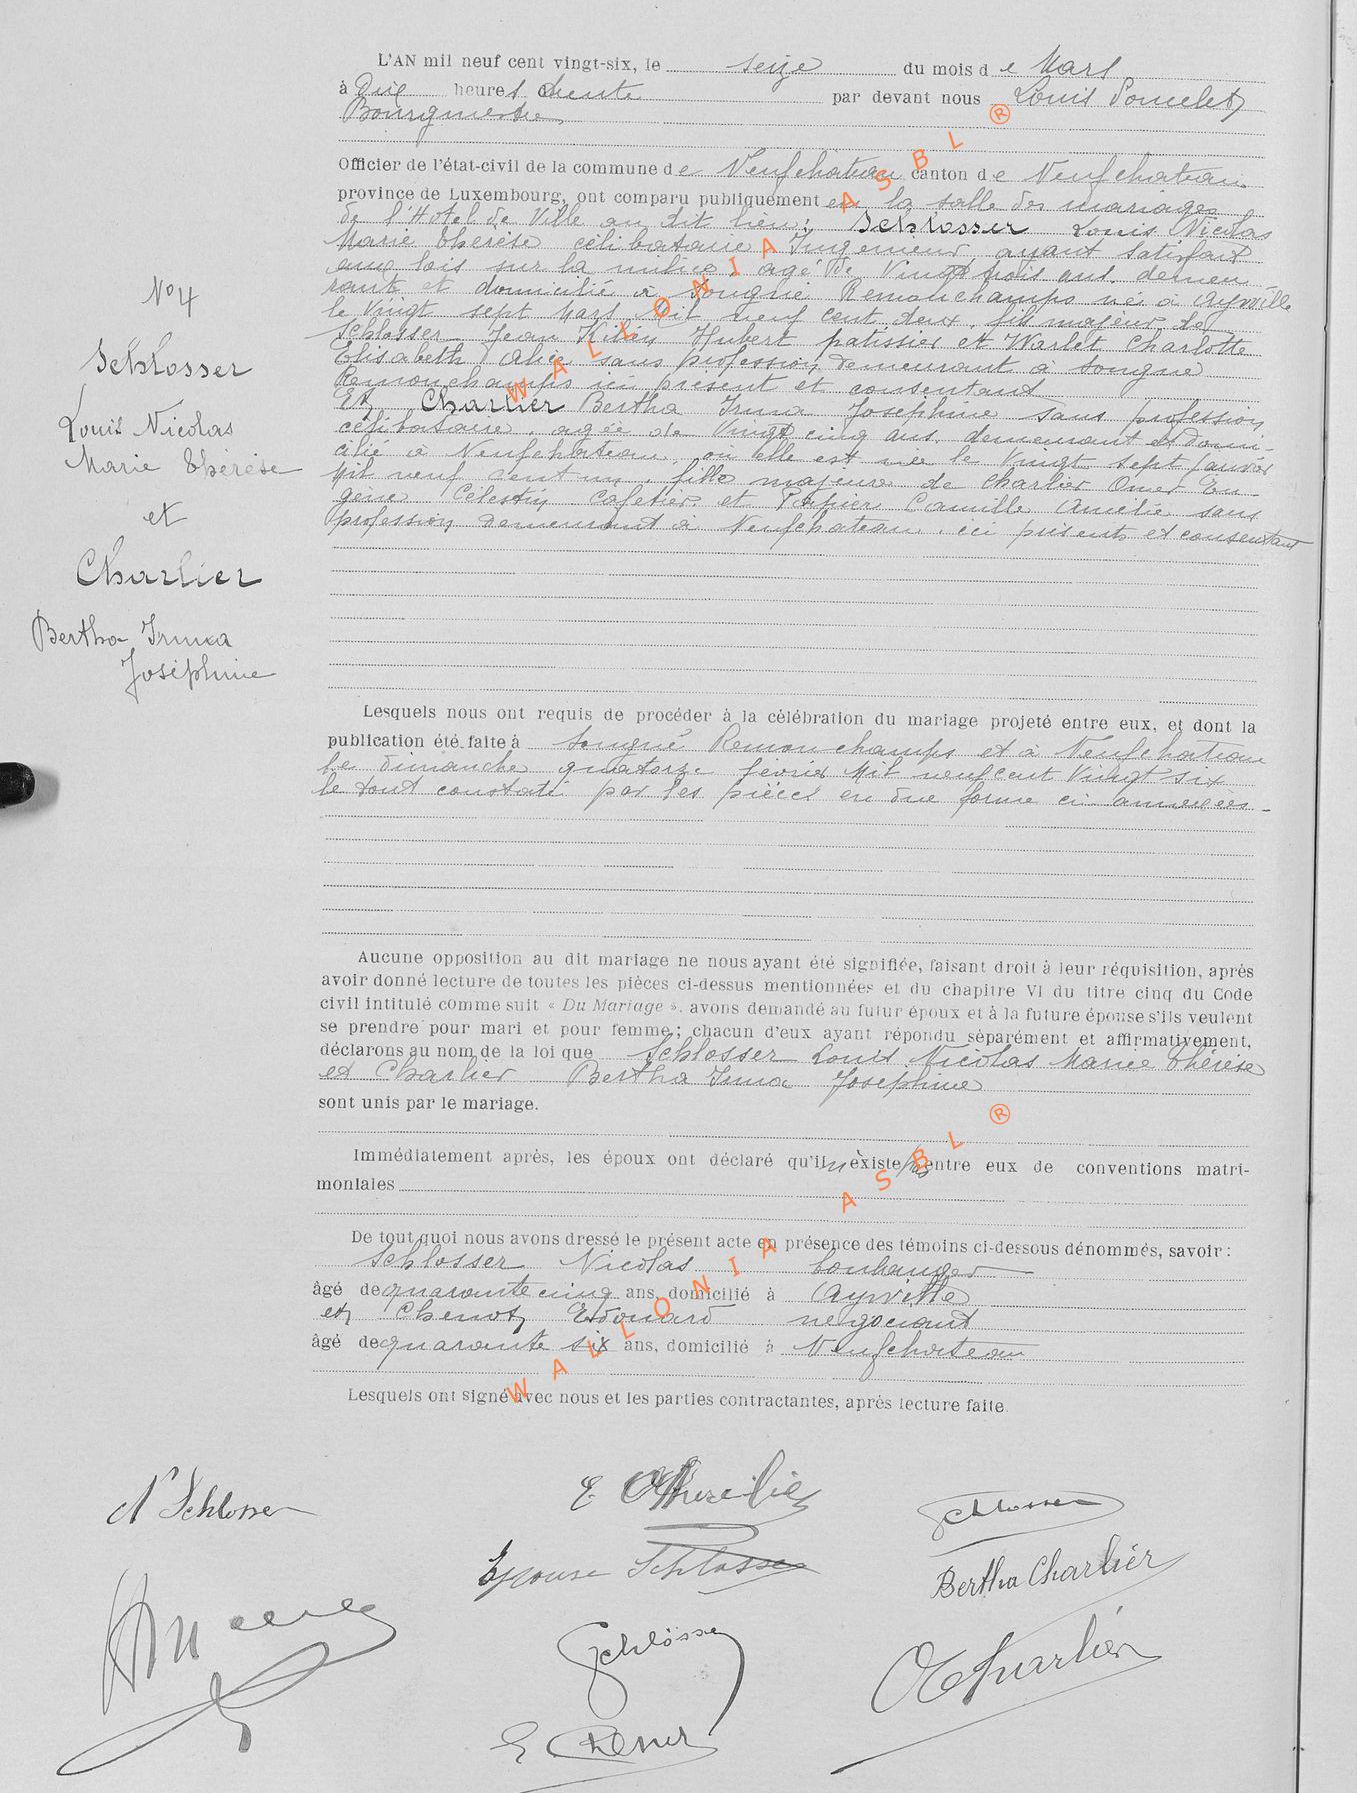 L'AN mil neuf cent vingt-six, le seize du mois de Mars
à Dix heures trente par devant nous Louis Poncelet
Bourgmestre
Officier de l'état-civil de la commune de Neufchateau canton de Neufchateau
province de Luxembourg, ont comparu publiquement en la salle des mariages
de l'Hotel de Ville au dit lieu: Schlosser Louis Nicolas
Marie Thérèse célibataire Ingenieur ayant satisfait
aux lois sur la milice, agé de Vingt trois ans. demeu
rant et domicilié à Sougné Remouchamps né à Aywille
le Vingt sept Mars Mil neuf cent deux, fils majeur de
Schlosser Jean Hubert patissier et Warlet Charlotte
Elisabeth Alice sans profession demeurant à Sougné
Remouchamps ici présent et consentant
Et Charlier Bertha Irma Josephine sans profession
célibataire, agée de Vingt cinq ans. demeurant et domi-
cilié à Neufchateau, ou elle est née le Vingt sept janvier
Mil neuf cent un, fille majeure de Charlier Omer Eu-
gène Célestin cafetier et Camille Amélie sans
profession demeurant à Neufchateau. ici présents et consentant
N° 4
Schlosser
Louis Nicolas
Marie Thérèse
et
Charlier
Bertha Irma
Joséphine
Lesquels nous ont requis de procéder à la célébration du mariage projeté entre eux, et dont la
publication été faite à Sougné Remouchamps et à Neufchateau
le dimanche quatorze février Mil neuf cent Vingt six
le tout constaté par les pièces en due forme ci annexées -
Aucune opposition au dit mariage ne nous ayant été signifiée, faisant droit à leur réquisition, après
avoir donné lecture de toutes les pièces ci-dessus mentionnées et du chapitre VI du titre cinq du Code
civil intitulé comme suit « Du Mariage ». avons demandé au futur époux et à la future épouse s'ils veulent
se prendre pour mari et pour femme; chacun d'eux ayant répondu séparément et affirmativement,
déclarons au nom de la loi que Schlosser Louis Nicolas Marie Thérèse
et Charlier Bertha Irma Josephine
sont unis par le mariage.
Immédiatement après, les époux ont déclaré qu'il n'existe pas entre eux de conventions matri-
moniales
De tout quoi nous avons dressé le présent acte en présence des témoins ci-dessous dénommés, savoir :
Schlosser Nicolas boulanger
âgé de quarante cinq ans, domicilié à Aywille
et Chenot Edouard negociant
âgé de quarante six ans, domicilié à Neufchateau
Lesquels ont signé avec nous et les parties contractantes, après lecture faite.
N Schlosser
Schlosser
Epouse Schlosser
Bertha Charlier
Schlösser
Charlier
WALLONIA ASBL ®
WALLONIA ASBL ®